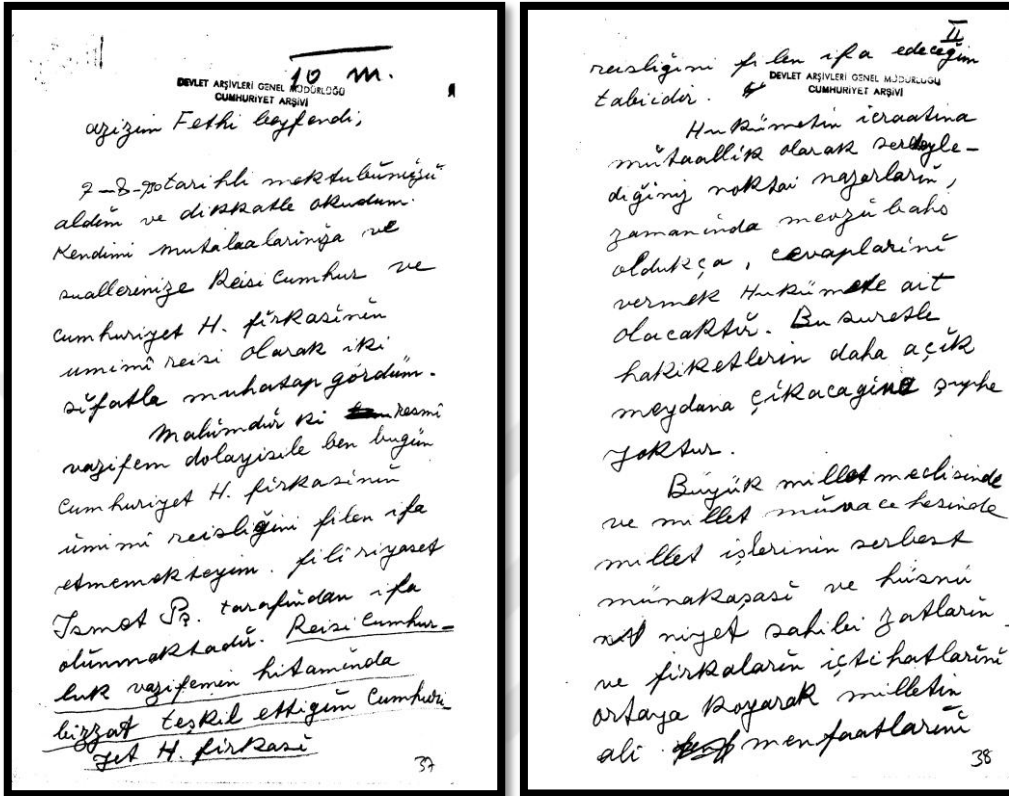 10 m.
DEVLET ARŞİVLERİ GENEL MÜDÜRLÜĞÜ
CUMHURİYET ARŞİVİ
azizim Fethi beyfendi,
tarihli mektubünüzü
aldim ve dikkatle okudum.
Kendimi mutalaalariniza ve
suallerinize Reisi Cumhur ve
Cumhuriyet H. firkasinin
umimî reisi olarak iki
sifatla muhatap gördüm.
Malümdur ki resmî
vazifem dolayisile ben bugün
Cumhuriyet H. firkasinin
ümimî reisliğini filen ifa
etmemekteyim. fili riyaset
Ismet Pş. tarafindan ifa
olünmaktadir. Reisi Cumhur-
luk vazifemin hitaminda
bizzat teşkil ettiğim Cumhuri-
yet H. firkasi
37
II
reisligini filen ifa edeceğim
tabiidir.
DEVLET ARŞİVLERİ GENEL MÜDÜRLÜĞÜ
CUMHURİYET ARŞİVİ
Hukümetin icraatina
mütaallik olarak serdeyle-
diğiniz noktai nazarlarin,
zamaninda mevzü bahs
oldukça, cevaplarini
vermek Hukümete ait
olacaktir. Bu suretle
hakiketlerin daha açik
meydana çikacagina şuphe
yoktur.
Büyük millet meclisinde
ve millet müvacehesinde
millet işlerinin serbest
münakaşasi ve hüsnü
niyet sahibi zatlarin
ve firkalarin içtihatlarini
ortaya koyarak milletin
ali menfaatlarini
38